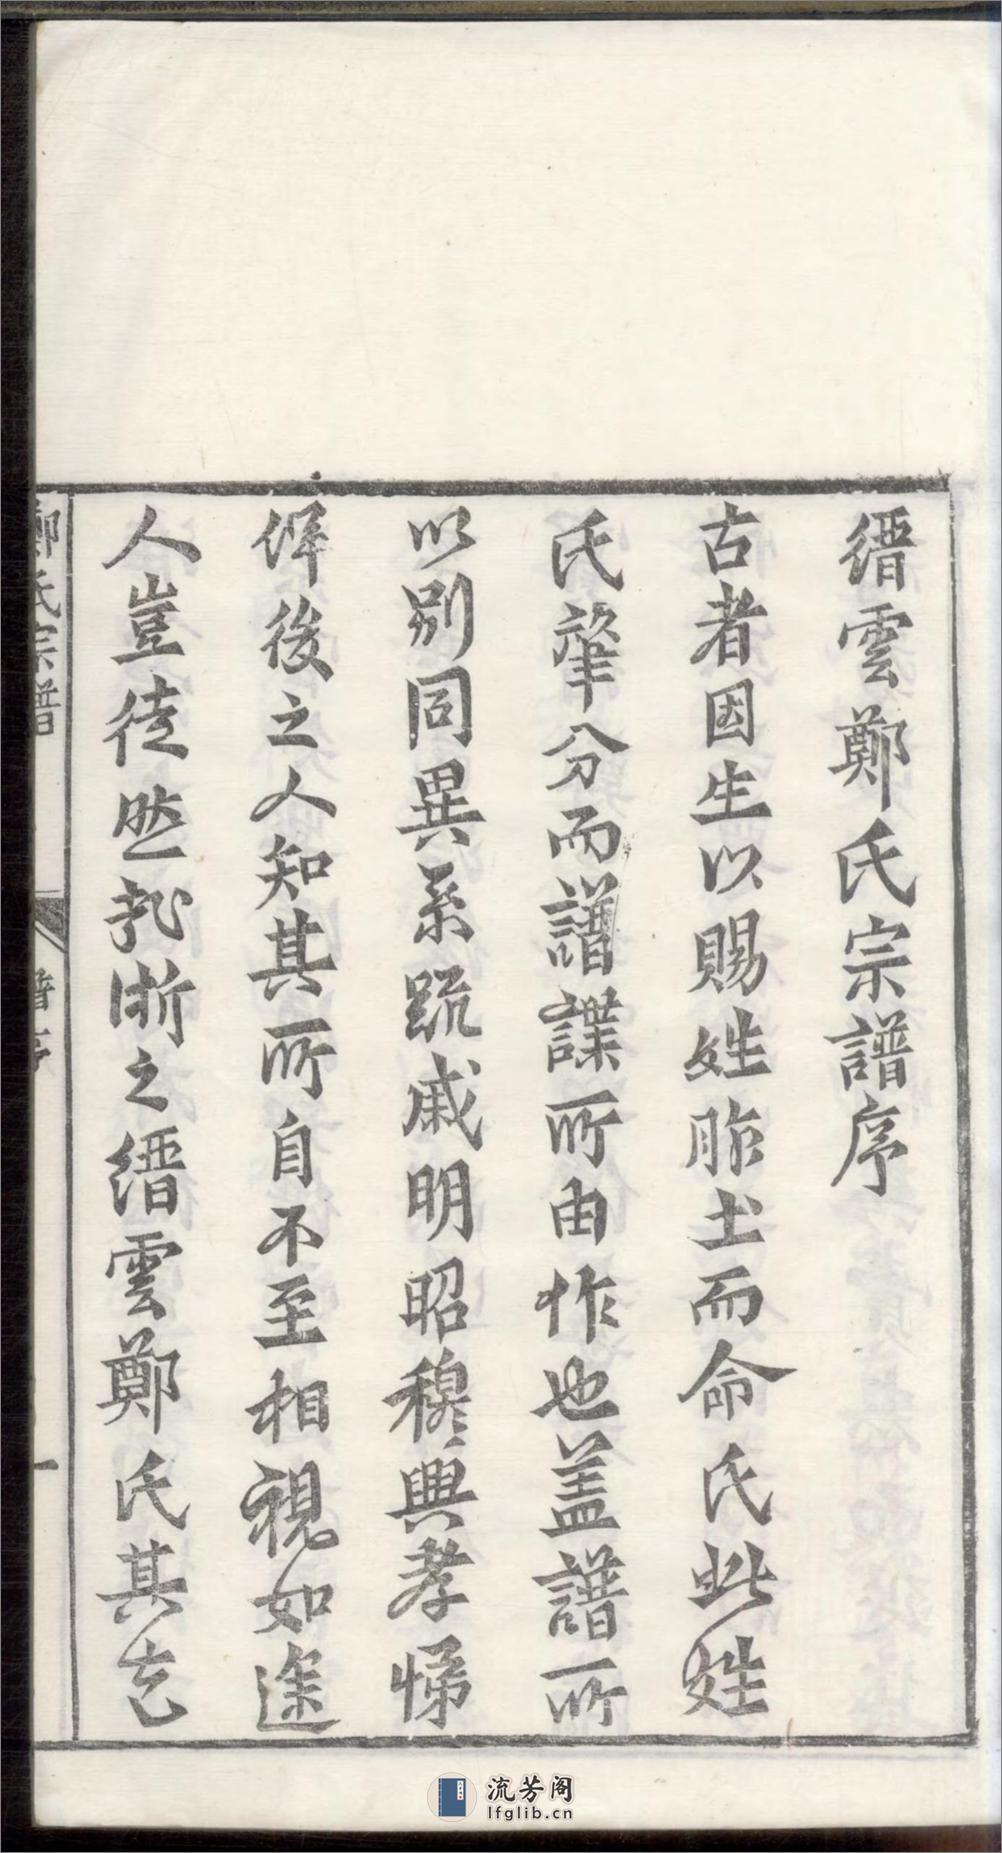 縉雲鄭氏宗譜序
古者因生以賜姓胙土而命氏此姓
氏肇分而譜諜所由作也盖譜所
以别同異系疏戚明昭穆興孝悌
俾後之人知其所自不至相視如途
人豈徒然哉浙之縉雲鄭氏其先
鄭氏宗譜
譜序
一
流芳阁
lfglib.cn